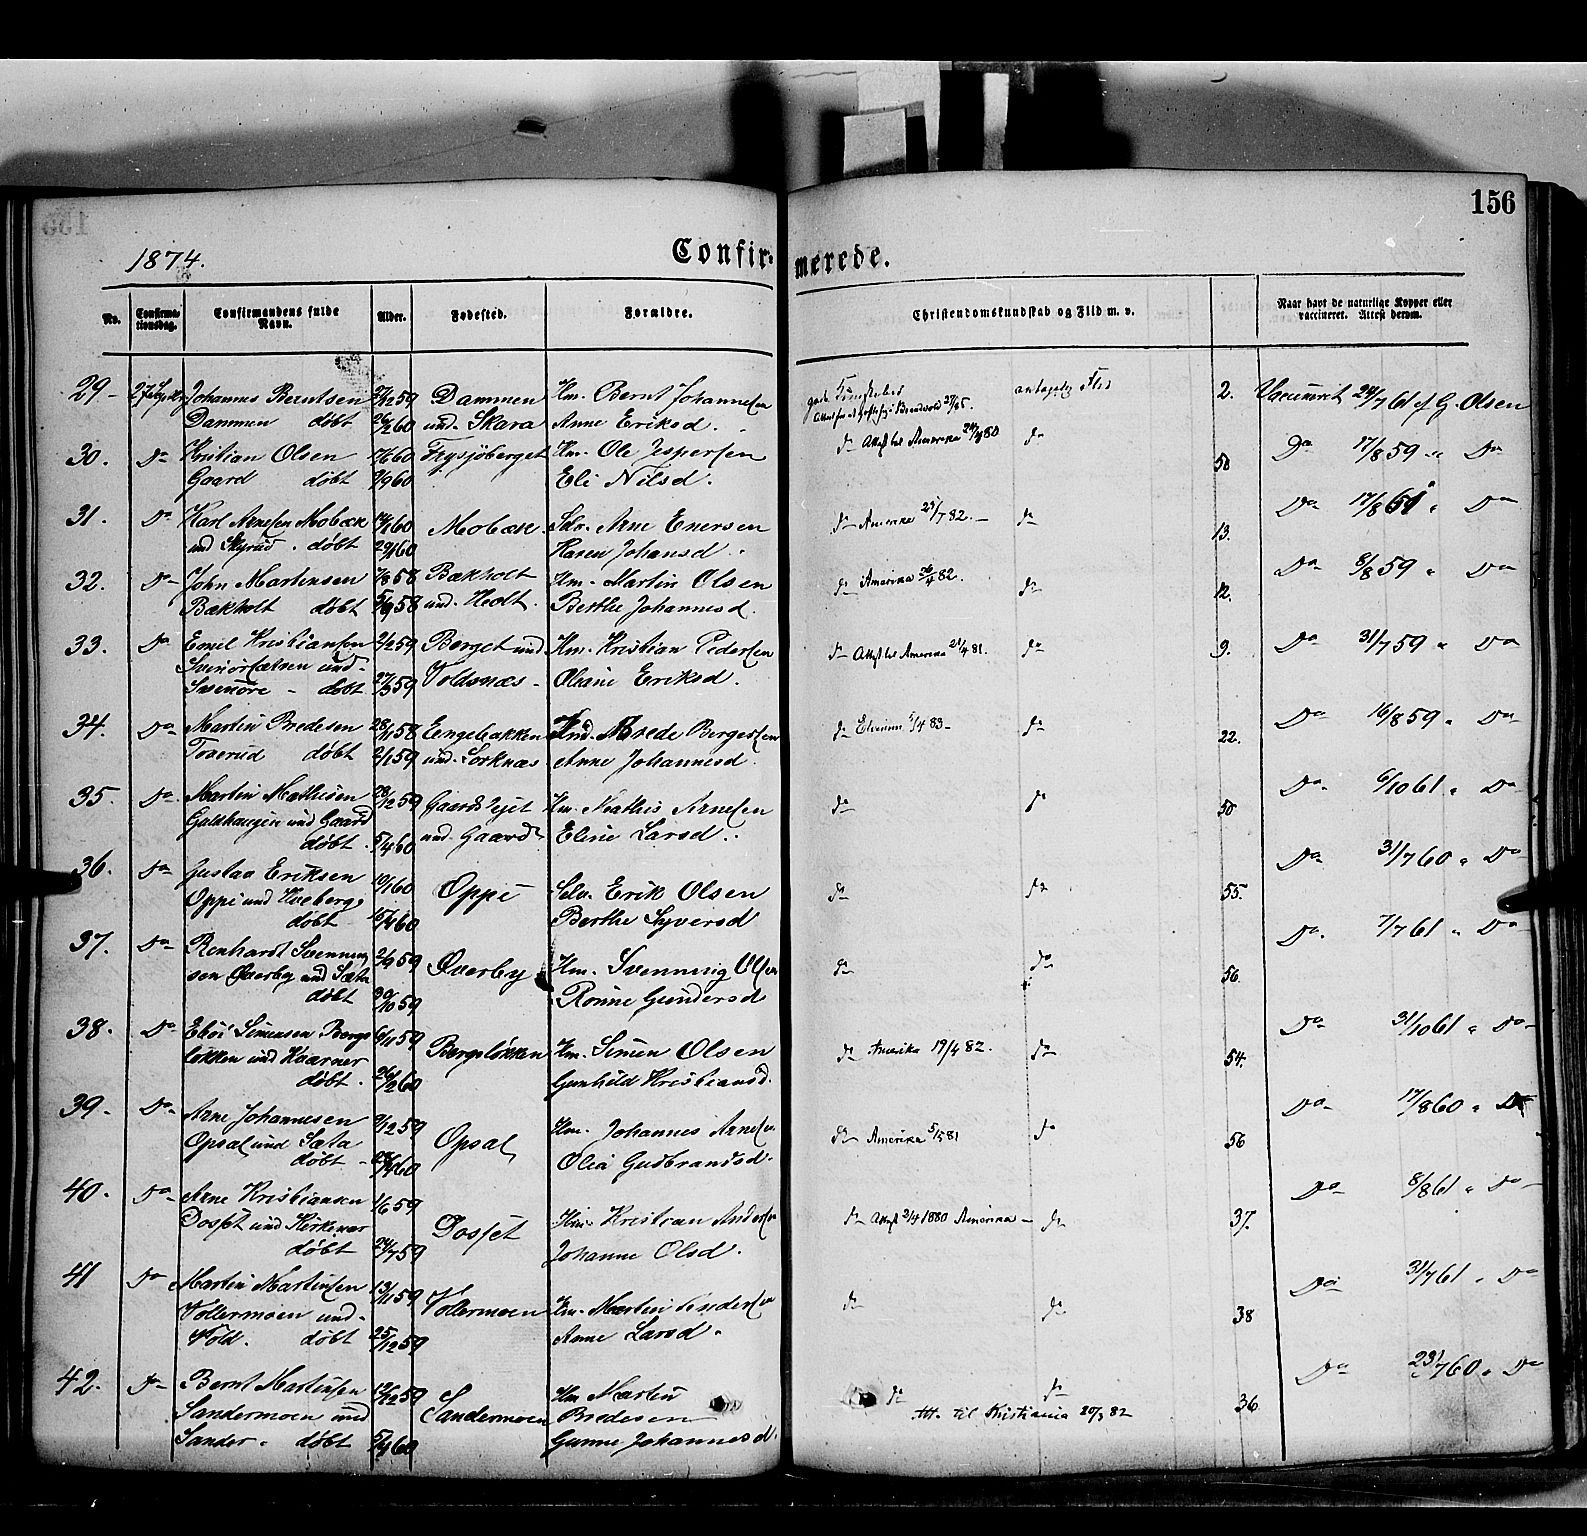 156
1874.
Confir-
merede.
No.
Confirma-
tionsdag.
Confirmandens fulde
Navn.
Alder.
Fødested.
Forældre.
Christendomskundskab og Flid m. v.
Naar havt de naturlige Kopper eller
vaccineret. Attest derom.
29 - Johannes Berntsen 27/12 59 Dammen Hm. Bernt Johannesen antagelig Flid 2. Vaccineret 24/7 61 af G. Olsen
Dammen døbt 26/2 60 und. Skara Anne Eriksd.
30. Do Kristian Olsen 17/6 60 Frysjøberget Hm. Ole Jespersen do Attest Amerika 24/4 80 do 50 Do 17/8 59 " Do
Gaard døbt 2/9 60 Eli Nilsd.
31. Do Karl Arnesen Mobæk 60 Mobæk Arne Enersen do Amerika 25/7 82. - do 13. Do 17/8 61 " Do
und døbt 60 Karen Johansd.
32. Do John Martinsen 7/8 58 Bækholt Hm. Martin Olsen do Amerika 26/4 82. do 12. Do 6/8 59 " Do
Bækholt døbt 5/9 58 und. Hedt. Berthe Johannesd.
33. Do Emil Kristiansen 2/2 59 Berget und Hm. Kristian Pedersen do Amerika 21/4 81. do 9. Do 31/7 59 " Do
und. Voldsnæs - Oliane Eriksd.
- døbt 27/3 59
34. Do Martin Bredesen 28/11 58 Engebakken Brede Bergersen do Elverum 5/4 83 - do 22. Do 16/8 59 " Do
Toverud døbt 2/1 59 und. Sorknæs Anne Johannesd.
35. Do Martin Mathisen 28/12 59 Hm. Mathis Arnesen do do 50 Do 6/10 61 " Do
und Gaard und. Gaard Eline Larsd.
døbt. 5/4 60
36. Do Gustav Eriksen 10/1 60 Oppi Selv. Erik Olsen do do 55. Do 31/7 60 " Do
Oppi und Hveberg
døbt 60 Berthe Syversd
37. Do Renhardt Svenning 2/9 59 Øverby Hm. Svenning Olsen do do 56. Do 7/7 61 " Do
sen Øverby und Sæta
døbt 30/10 59 Ronne Gundersd
38. Do Simensen Bergs 6/11 59 Bergsløkken Hm. Simen Olsen do Amerika 19/4 82. do 54. Do 31/10 61 " Do
løkken und
døbt. 26/2 60 Gunhild Kristiansd.
39. Do Arne Johannesen 9/12 59 Opsal Hm. Johannes Arnesen do Amerika 5/5 81 do 56 Do 17/8 60 " Do
Opsal und Sæta
døbt - 60 Olia Gudbrandsd.
40. Do Arne Kristiansen 1/6 59 Dosset Hm. Kristian Andersen do Attest 3/4 1880 Amerika - do 37. Do 8/8 61 " Do
Dosset und Kirkevær
døbt 24/7 59 Johanne Olsd.
41 Do Martin Martinsen 13/11 59 Vollermoen Hm. Martin Andersen do do 38 Do 31/7 61 " Do
Vollermoen und.
Vold. døbt 25/12 59 Anne Larsd.
42. Do Bernt Martinsen 12/12 59 Sandermoen Hm Martin do do 36 Do 23/7 60 " Do
Sandermoen und Bredesen Att. til Kristiania 20/3 82
Sander. døbt 5/4 60 Gunne Johannesd.